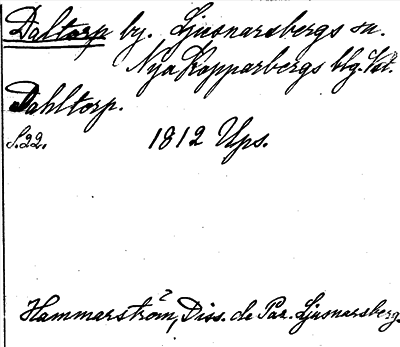 Daltorp by. Ljusnarsbergs sn.
Nya Kopparbergs blg. Vst.
Dahltorp.
S.22. 1812 Ups.
Hammarström, Diss. de Par. Ljusnarsberg.